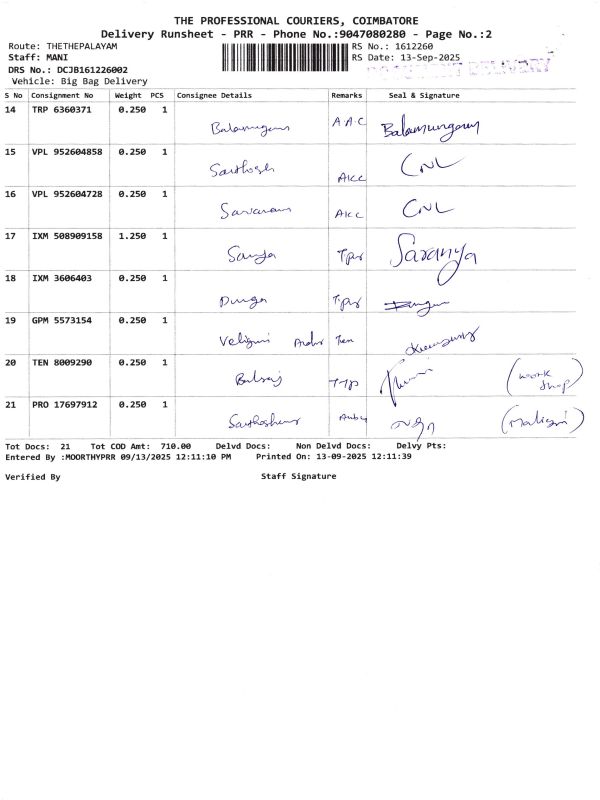 THE PROFESSIONAL COURIERS, COIMBATORE
Delivery Runsheet - PRR - Phone No.:9047080280 - Page No.:2
Route: THETHEPALAYAM
Staff: MANI
DRS No.: DCJB161226002
Vehicle: Big Bag Delivery
RS No.: 1612260
RS Date: 13-Sep-2025
DOCUMENT DELIVERY
S No Consignment No Weight PCS Consignee Details Remarks Seal & Signature
14 TRP 6360371 0.250 1 Balamurugan A.A.C Balamurugan
15 VPL 952604858 0.250 1 Santhosh AKC
16 VPL 952604728 0.250 1 AKC
17 IXM 508909158 1.250 1 Saranya
18 IXM 3606403 0.250 1 Durga
19 GPM 5573154 0.250 1
20 TEN 8009290 0.250 1 (work shop)
21 PRO 17697912 0.250 1
Tot Docs: 21 Tot COD Amt: 710.00 Delvd Docs: Non Delvd Docs: Delvy Pts:
Entered By :MOORTHYPRR 09/13/2025 12:11:10 PM Printed On: 13-09-2025 12:11:39
Verified By Staff Signature